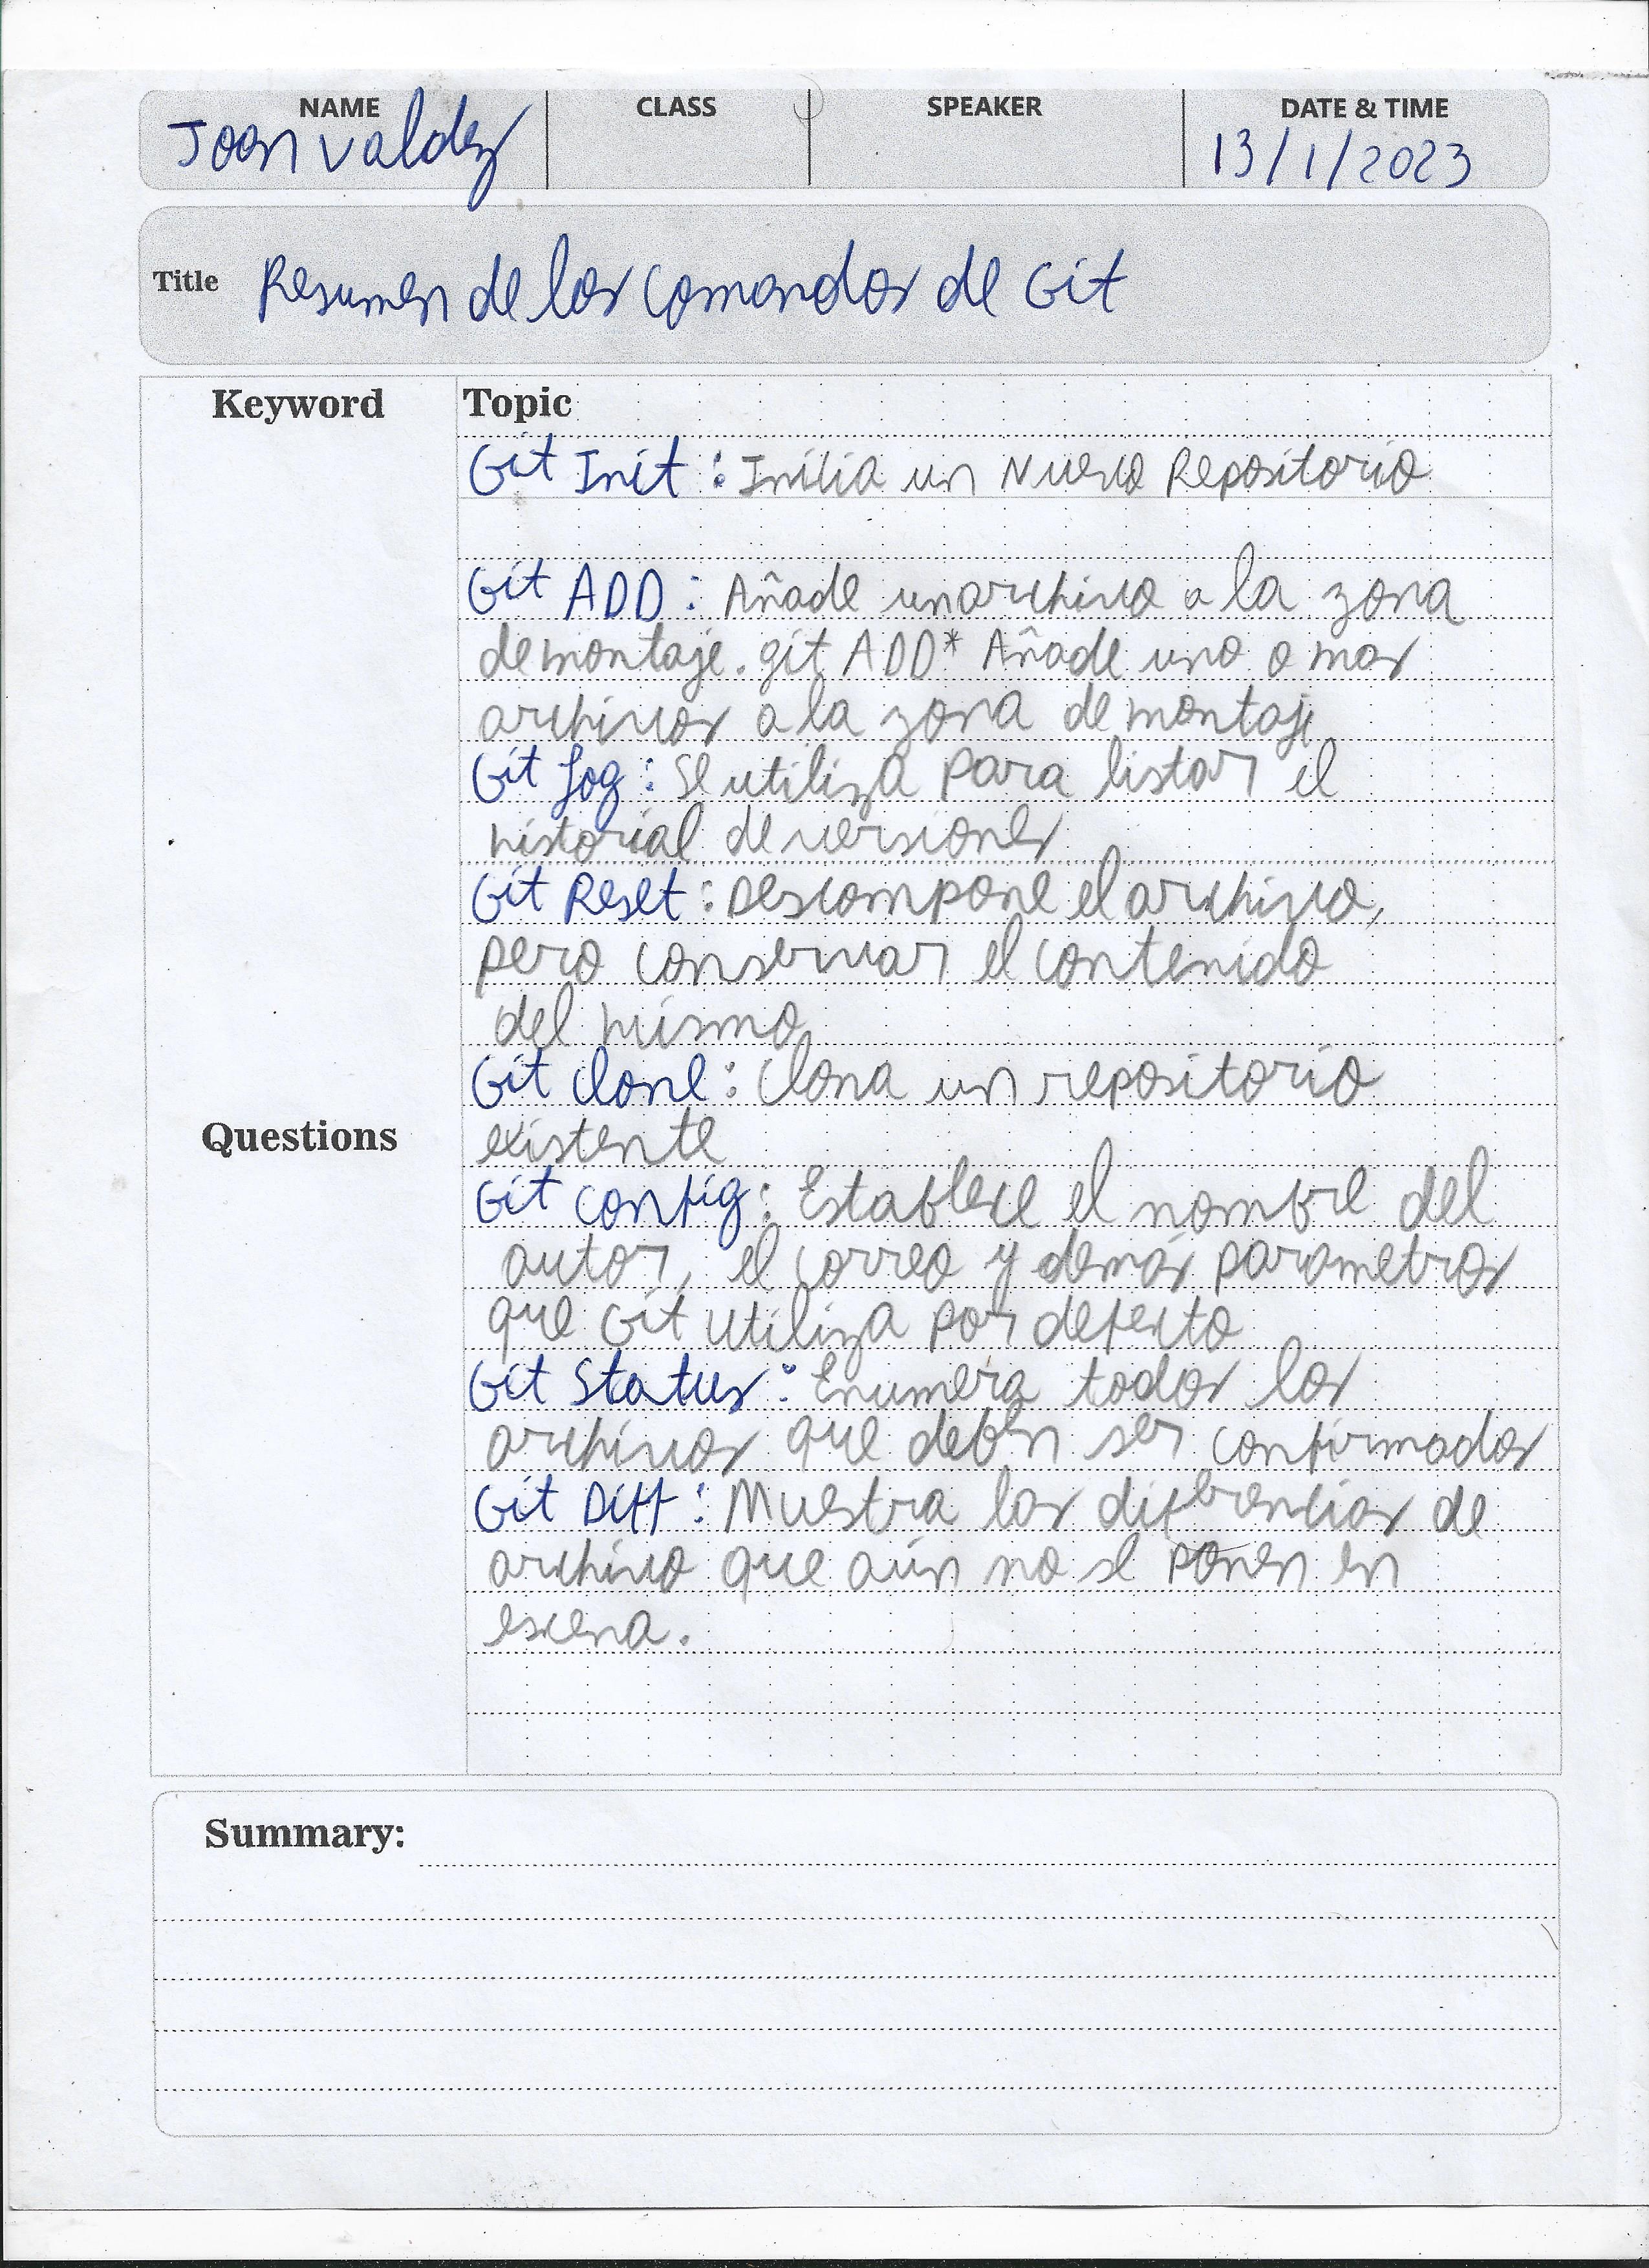 NAME CLASS SPEAKER DATE & TIME
Joan Valdez 13/1/2023
Title Resumen de los comandos de Git
Keyword Topic
Git Init : Inicia un Nuevo Repositorio
Git ADD : Añade un archivo a la zona
de montaje. git ADD* Añade uno o mas
archivos a la zona de montaje
Git Log : Se utiliza para listar el
historial de versiones
Git Reset : Descompone el archivo,
pero conservar el contenido
del mismo
Git clone : Clona un repositorio
Questions existente
Git config : Establece el nombre del
autor, el correo y demás parametros
que Git utiliza por defecto
Git Status : Enumera todos los
archivos que deben ser confirmados
Git Diff : Muestra las diferencias de
archivo que aún no se ponen en
escena.
Summary: